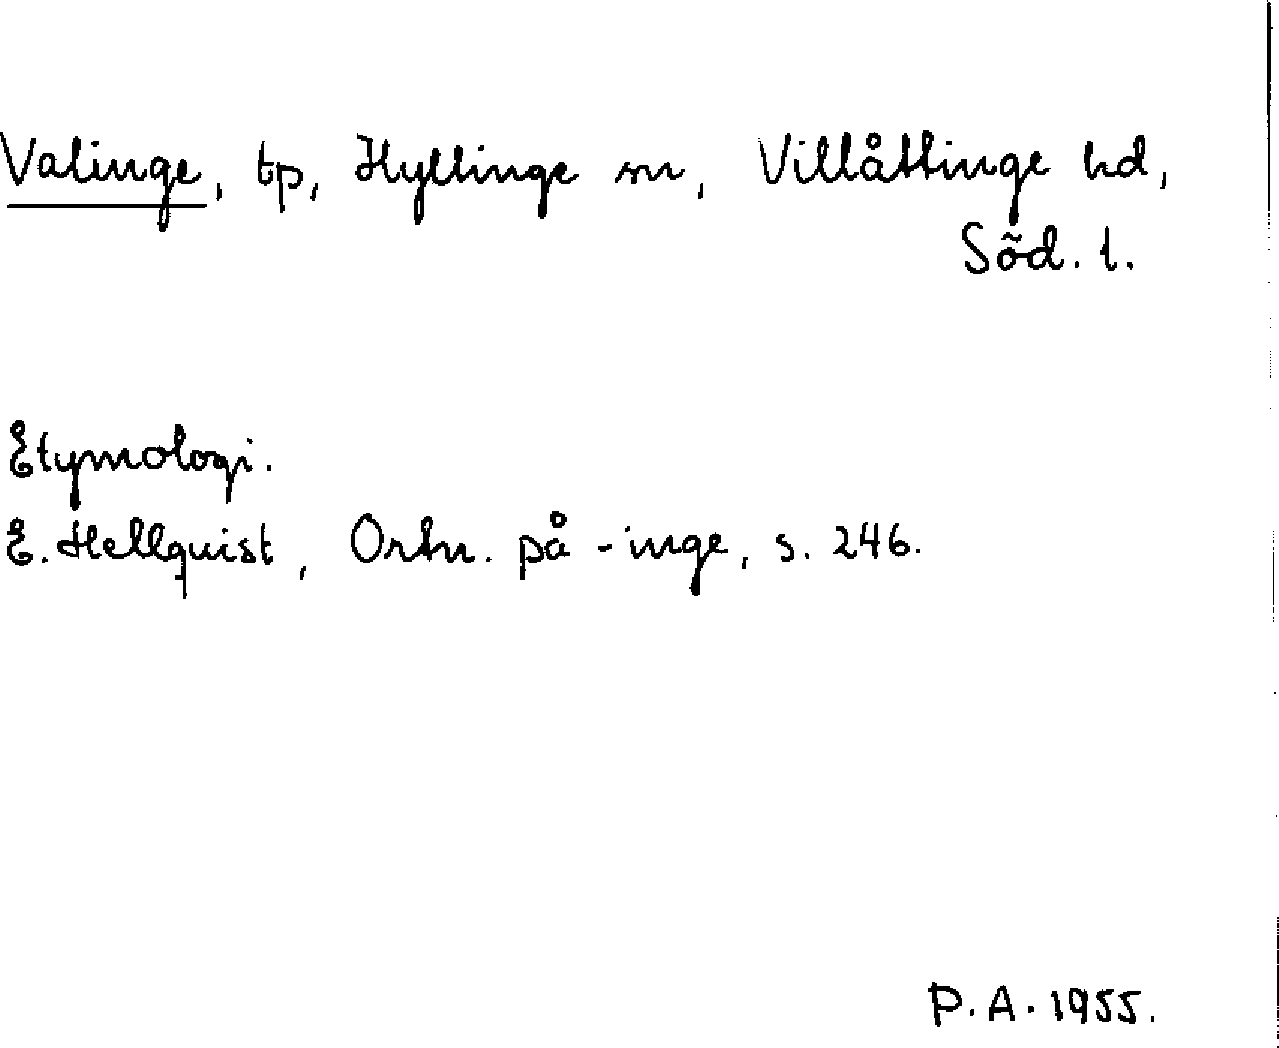 Valinge, tp, Hyltinge sn, Villåttinge hd,
Söd. l.
Etymologi.
E. Hellquist, Ortn. på -inge, s. 246.
P. A. 1955.